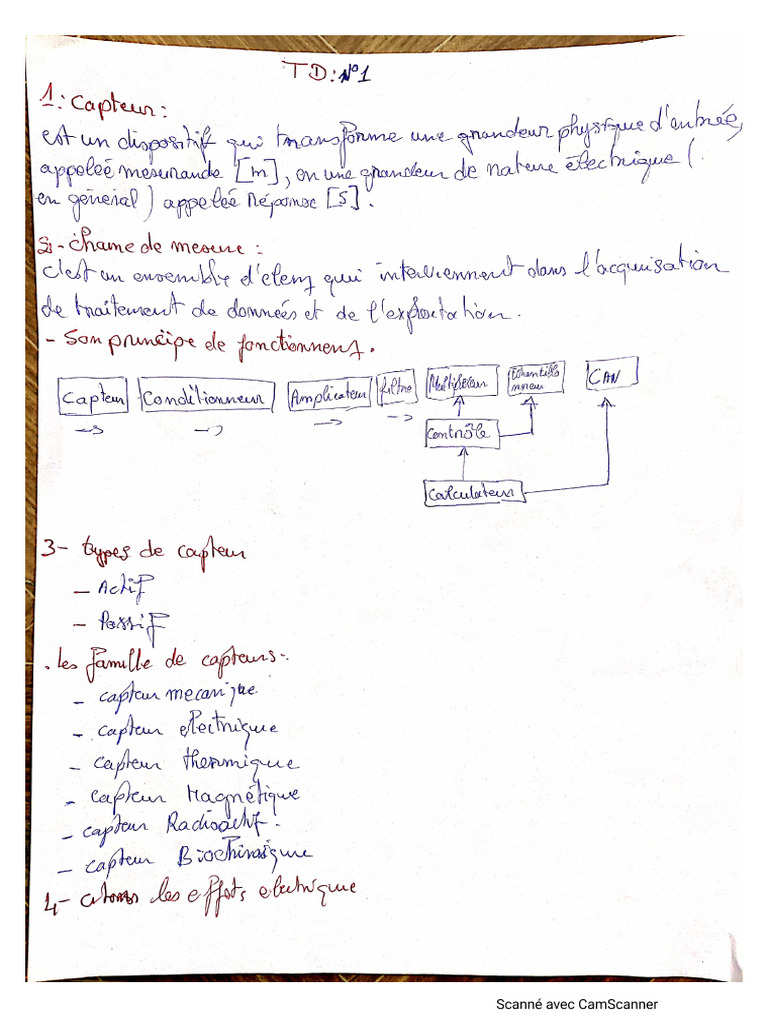 TD: N°1
1: Capteur:
est un dispositif qui transforme une grandeur physique d'entrée,
appeleé mesurande [m], en une grandeur de nature électrique (
en géneral) appeleé Réponse [S].
2- chaine de mesure:
C'est un ensemble d'elemz qui interviennent dans l'acquisation
de traitement de données et de l'exploitation.
- Son principe de fonctionnemz.
Capteur Conditionneur Amplicateur filtre Multiplexeur Echantillonneur CAN
Contrôle
Calculateur
3- types de capteur
- Actif
- Passif
. les famille de capteurs:
- capteur mecanique
- capteur electrique
- capteur thermique
- capteur Magnétique
- capteur Radioactif.
- capteur Biochimique
4- citons les effets electrique
Scanné avec CamScanner